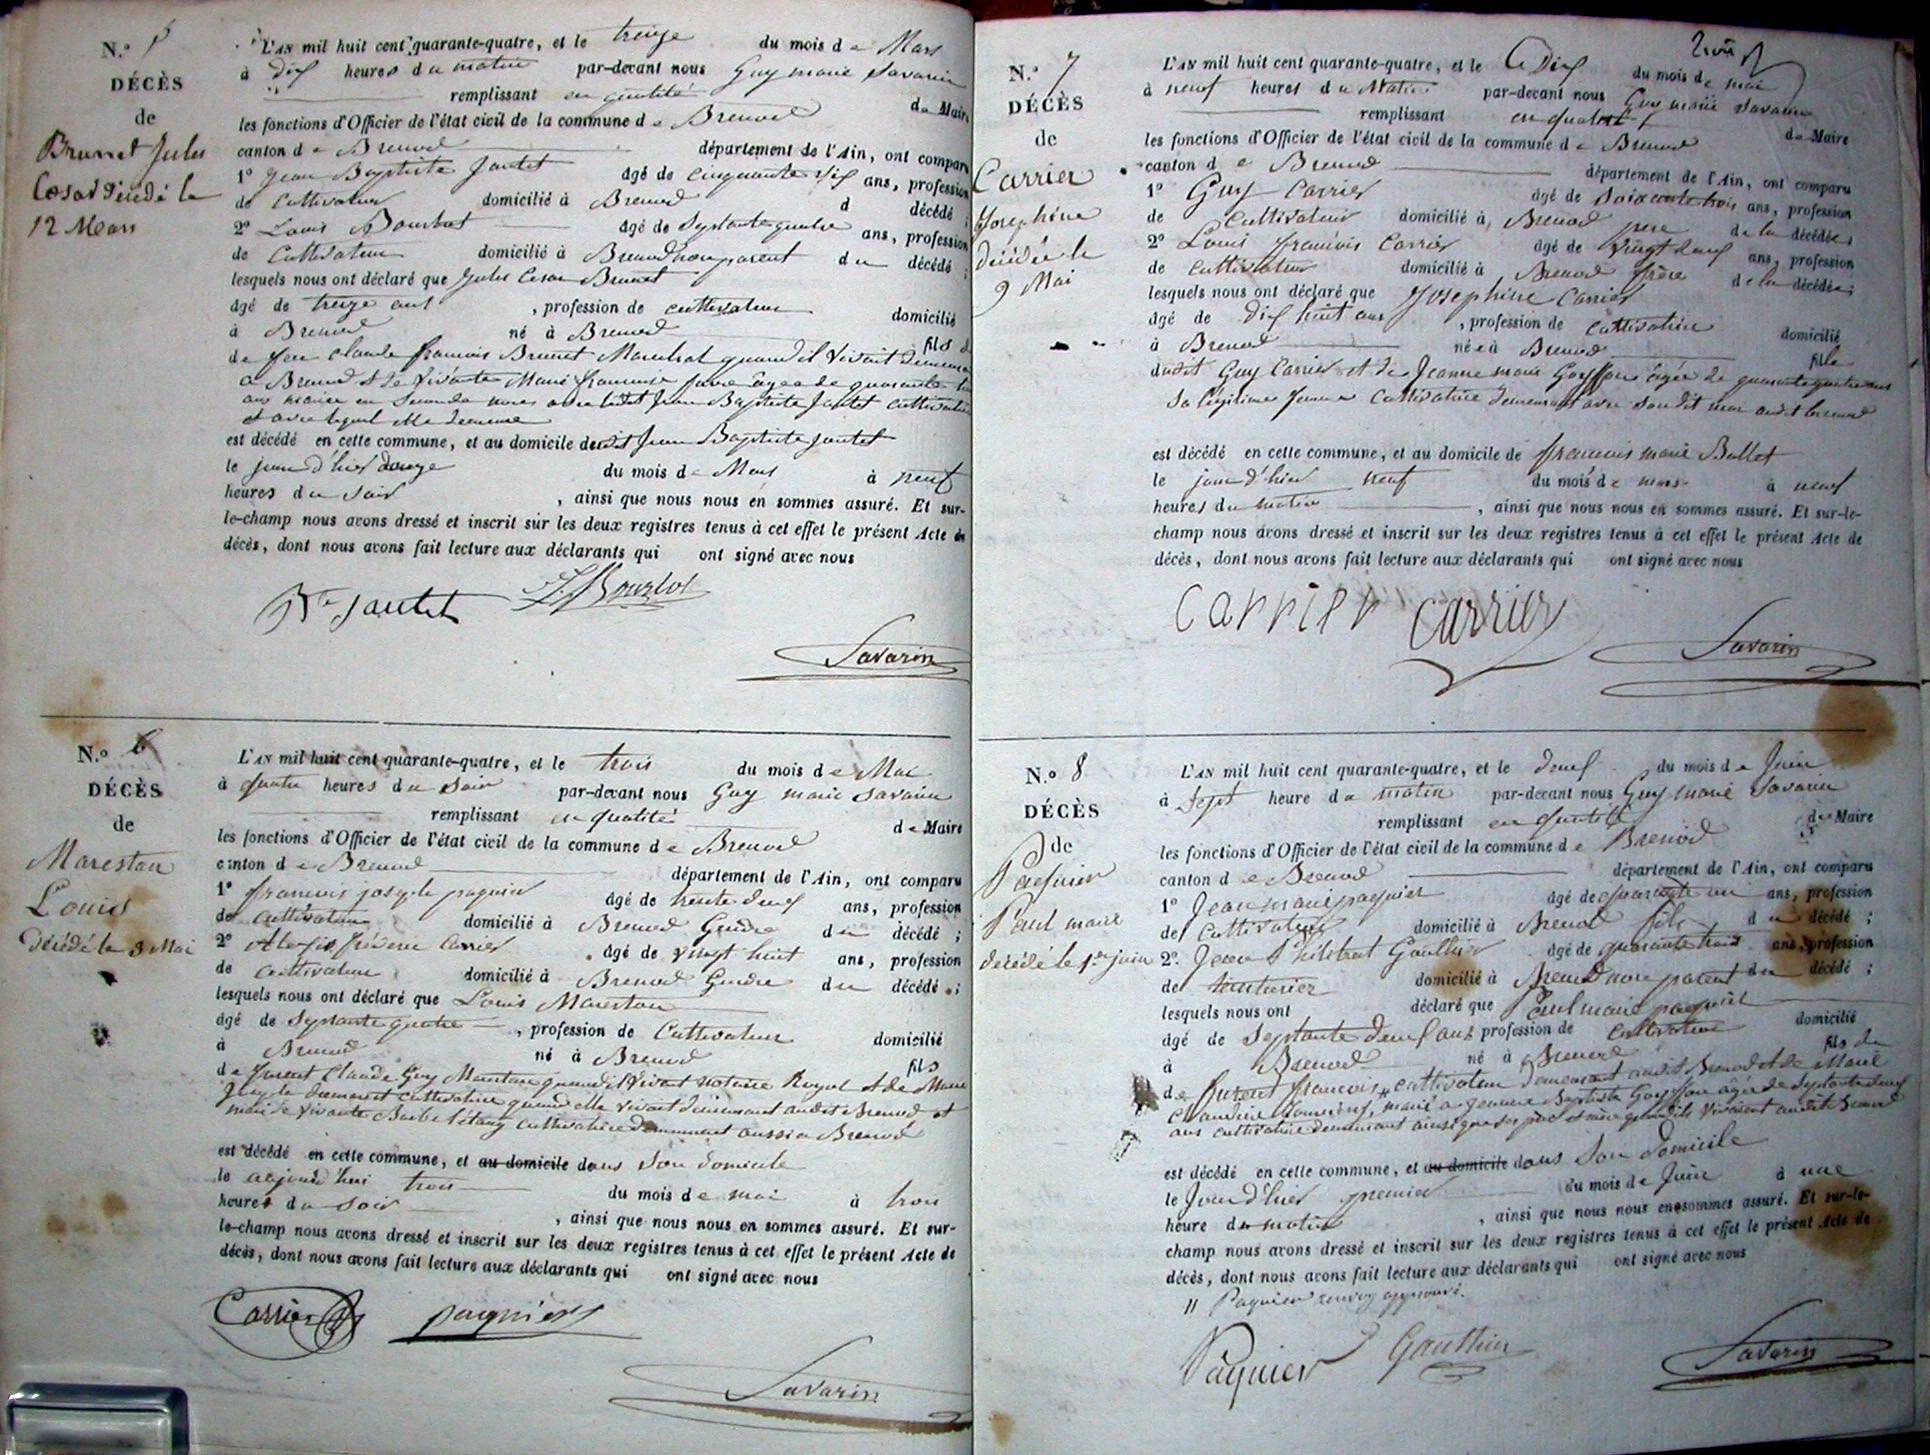 N.º 5
DÉCÈS
de
Brunet Jules
Cesar décédé le
12 Mars
L'AN mil huit cent quarante-quatre, et le treize du mois de Mars
à dix heures du matin par-devant nous Guy marie Savarin
remplissant en qualité de Maire
les fonctions d'Officier de l'état civil de la commune de Brenod
canton de Brenod département de l'Ain, ont comparu
1º Jean Baptiste Jantet âgé de cinquante six ans, profession
de Cultivateur domicilié à Brenod d décédé ;
2º Louis Bourbot âgé de septante quatre ans, profession
de Cultivateur domicilié à Brenod non parent du décédé ;
lesquels nous ont déclaré que Jules Cesar Brunet
âgé de treize ans , profession de cultivateur domicilié
à Brenod né à Brenod fils
de feu Claude françois Brunet Marechal quand il vivait demeurant
a Brenod et de vivante Marie françoise favre agée de quarante
ans mariée en seconde noces avec ledit Jean Baptiste Jantet cultivateur
et avec lequel elle demeure
est décédé en cette commune, et au domicile dudit Jean Baptiste Jantet
le jour d'hier douze du mois de Mars à neuf
heures du soir , ainsi que nous nous en sommes assuré. Et sur-
le-champ nous avons dressé et inscrit sur les deux registres tenus à cet effet le présent Acte de
décès, dont nous avons fait lecture aux déclarants qui ont signé avec nous
Bte Jantet L. Bourbot
Savarin
N.º 6
DÉCÈS
de
Marestan
Louis
décédé le 3 Mai
L'AN mil huit cent quarante-quatre, et le trois du mois de Mai
à quatre heures du soir par-devant nous Guy marie Savarin
remplissant en qualité de Maire
les fonctions d'Officier de l'état civil de la commune de Brenod
canton de Brenod département de l'Ain, ont comparu
1º francois joseph paquier âgé de trente deux ans, profession
de cultivateur domicilié à Brenod Gendre du décédé ;
2º Alexis frédéric Carrier âgé de vingt huit ans, profession
de cultivateur domicilié à Brenod Gendre du décédé ;
lesquels nous ont déclaré que Louis Marestan
âgé de septante quatre , profession de Cultivateur domicilié
à Brenod né à Brenod fils
de furent Claude Guy Marestan quand il vivait notaire Royal et de Marie
cultivatrice quand elle vivait demeurant audit Brenod et
mari de vivante Barbe Létang cultivatrice demeurant aussi a Brenod
est décédé en cette commune, et au domicile dans son domicile
le aujourd'hui trois du mois de mai à trois
heures du soir , ainsi que nous nous en sommes assuré. Et sur-
le-champ nous avons dressé et inscrit sur les deux registres tenus à cet effet le présent Acte de
décès, dont nous avons fait lecture aux déclarants qui ont signé avec nous
Carrier paquier
Savarin
N.º 7
DÉCÈS
de
Carrier
Josephine
décédée le
9 Mai
L'AN mil huit cent quarante-quatre, et le dix du mois de mai
à neuf heures du Matin par-devant nous Guy marie Savarin
remplissant en qualité de Maire
les fonctions d'Officier de l'état civil de la commune de Brenod
canton de Brenod département de l'Ain, ont comparu
1º Guy Carrier âgé de soixante trois ans, profession
de Cultivateur domicilié à Brenod pere de la décédée
2º Louis françois Carrier âgé de vingt deux ans, profession
de cultivateur domicilié à Brenod frère de la décédée ;
lesquels nous ont déclaré que Josephine Carrier
âgé de dix huit ans , profession de cultivatrice domicilié
à Brenod née à Brenod fille
dudit Guy Carrier et de Jeanne marie Goyffon agée de quarante quatre ans
sa légitime femme cultivatrice demeurant avec son dit mari audit brenod
est décédé en cette commune, et au domicile de francois marie Ballet
le jour d'hier neuf du mois de mars à neuf
heures du matin , ainsi que nous nous en sommes assuré. Et sur-le-
champ nous avons dressé et inscrit sur les deux registres tenus à cet effet le présent Acte de
décès, dont nous avons fait lecture aux déclarants qui ont signé avec nous
Carrier Carrier
Savarin
N.º 8
DÉCÈS
de
Paquier
Paul marie
décédé le 1er juin
L'AN mil huit cent quarante-quatre, et le deux du mois de Juin
à sept heure du matin par-devant nous Guy marie Savarin
remplissant en qualité de Maire
les fonctions d'Officier de l'état civil de la commune de Brenod
canton de Brenod département de l'Ain, ont comparu
1º Jean marie paquier âgé de quarante un ans, profession
de Cultivateur domicilié à Brenod fils du décédé ;
2º Jean Philibert Gauthier âgé de quarante trois ans, profession
de teinturier domicilié à Brenod non parent du décédé ;
lesquels nous ont déclaré que Paul marie paquier
âgé de septante deux ans profession de cultivateur domicilié
à Brenod né à Brenod fils de
de furent francois // cultivateur demeurant audit Brenod et de Marie
Claudine marié a Jeanne Baptiste Goyffon agée de septante deux
ans cultivatrice demeurant ainsi que ses père et mère quand ils vivaient audit Brenod
est décédé en cette commune, et au domicile dans son domicile
le Jour d'hier premier du mois de Juin à une
heure du matin , ainsi que nous nous en sommes assuré. Et sur-le-
champ nous avons dressé et inscrit sur les deux registres tenus à cet effet le présent Acte de
décès, dont nous avons fait lecture aux déclarants qui ont signé avec nous
// Paquier renvoy approuvé.
Paquier Gauthier
Savarin